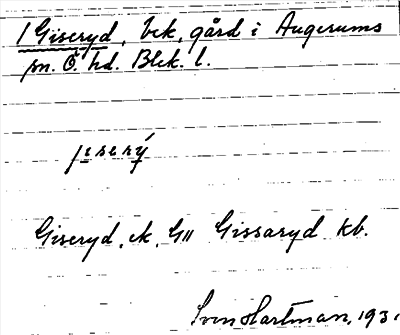 1 Giseryd, bek. gård i Augerums
sn. Ö. hd. Blek. l.
Giseryd, ek, G11 Gissaryd kb.
Sven Hartman, 193